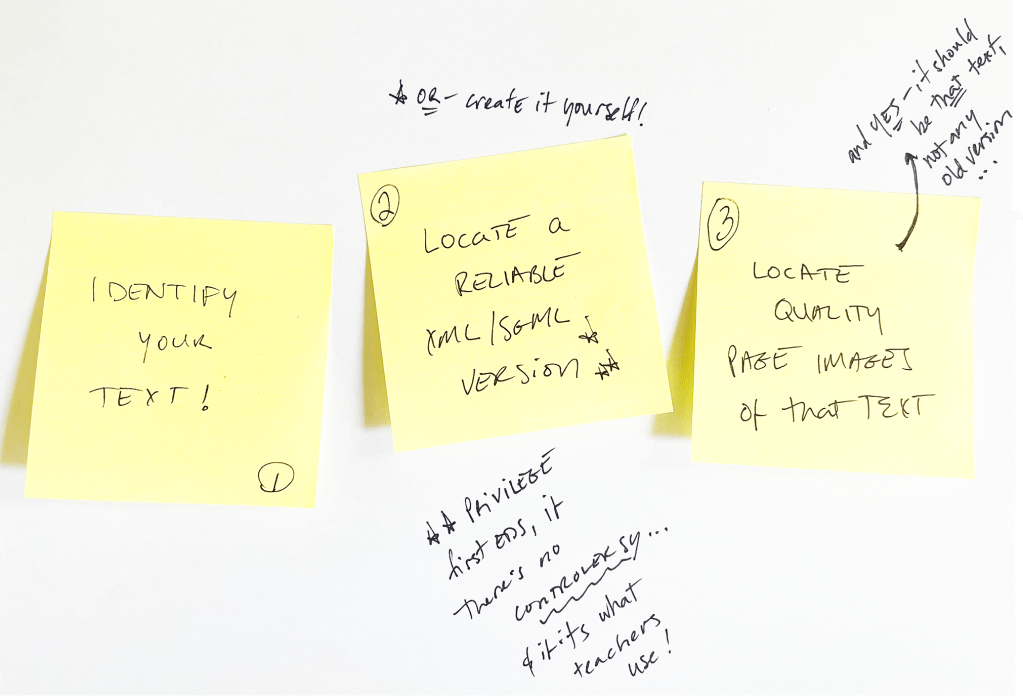 IDENTIFY
YOUR
TEXT!
1
* OR - create it yourself!
2
LOCATE a
RELIABLE
XML/SGML *
VERSION **
** PRIVILEGE
first EDS, if
there's no
CONTROVERSY...
& if it's what
teachers
use!
3
LOCATE
QUALITY
PAGE IMAGES
of that TEXT
and YES - it should
be that text,
not any
old version
...